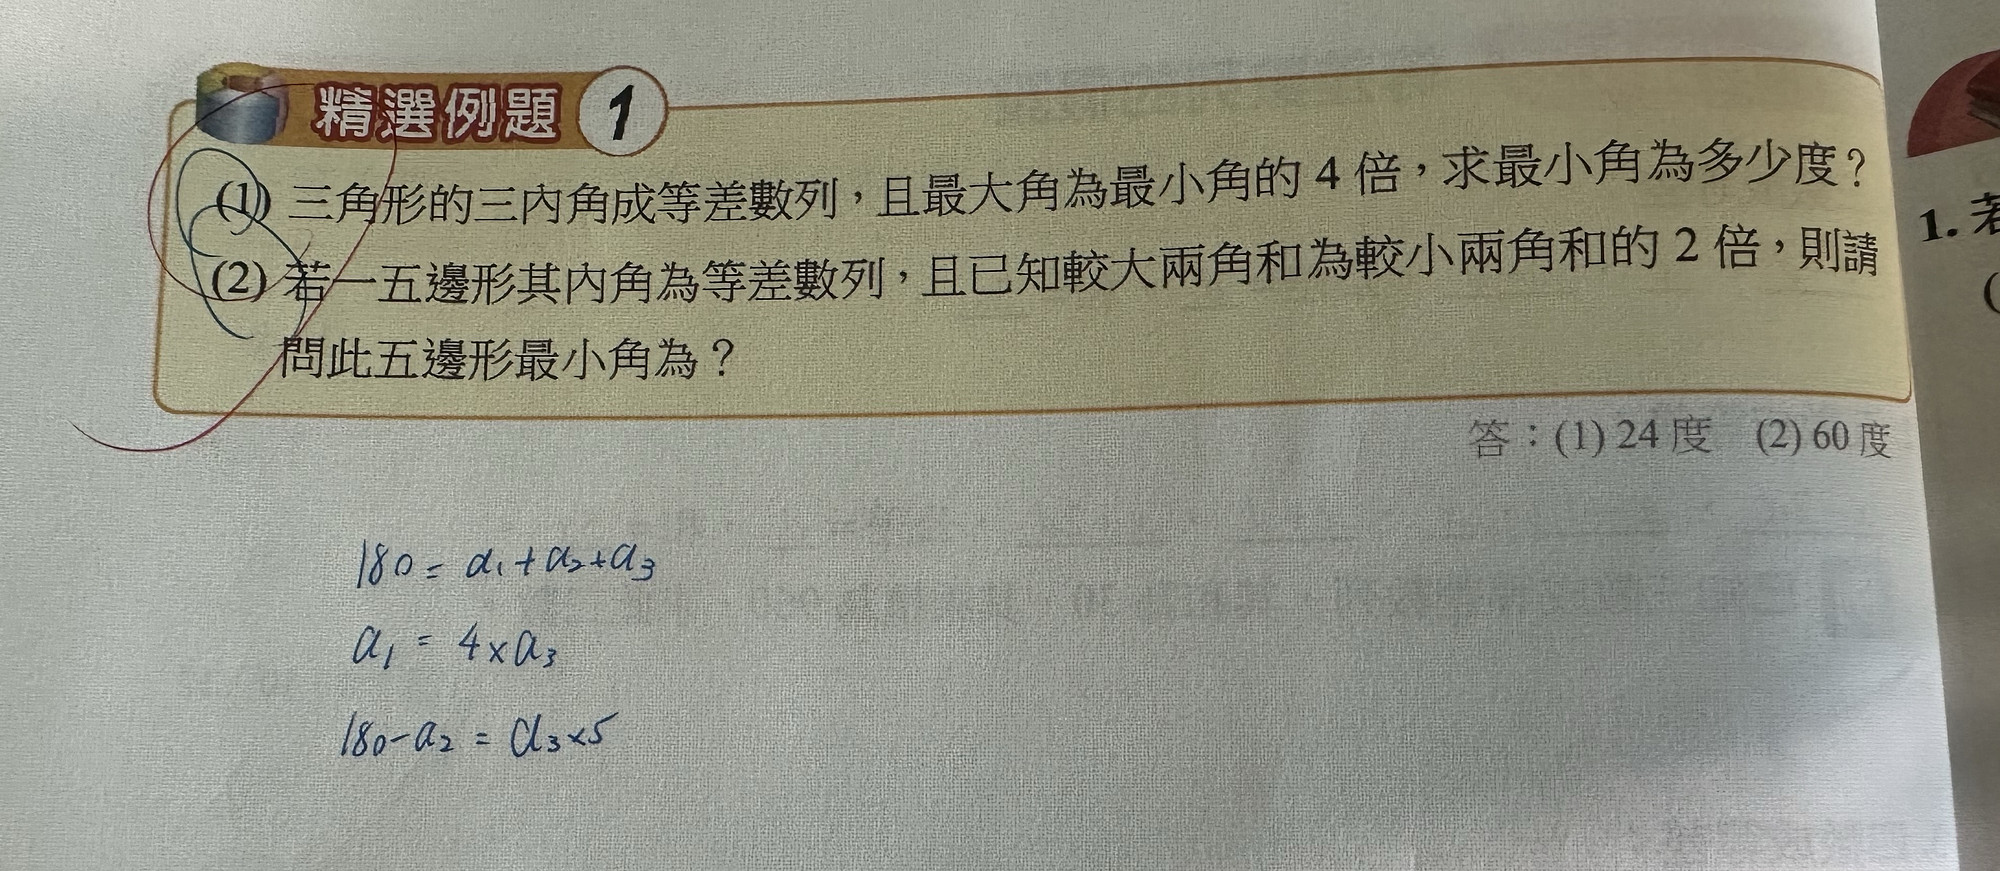 精選例題 1
(1) 三角形的三內角成等差數列，且最大角為最小角的 4 倍，求最小角為多少度？
(2) 若一五邊形其內角為等差數列，且已知較大兩角和為較小兩角和的 2 倍，則請
問此五邊形最小角為？
答：(1) 24 度 (2) 60 度
180 = a₁+a₂+a₃
a₁ = 4×a₃
180-a₂ = a₃×5
1. 若
(